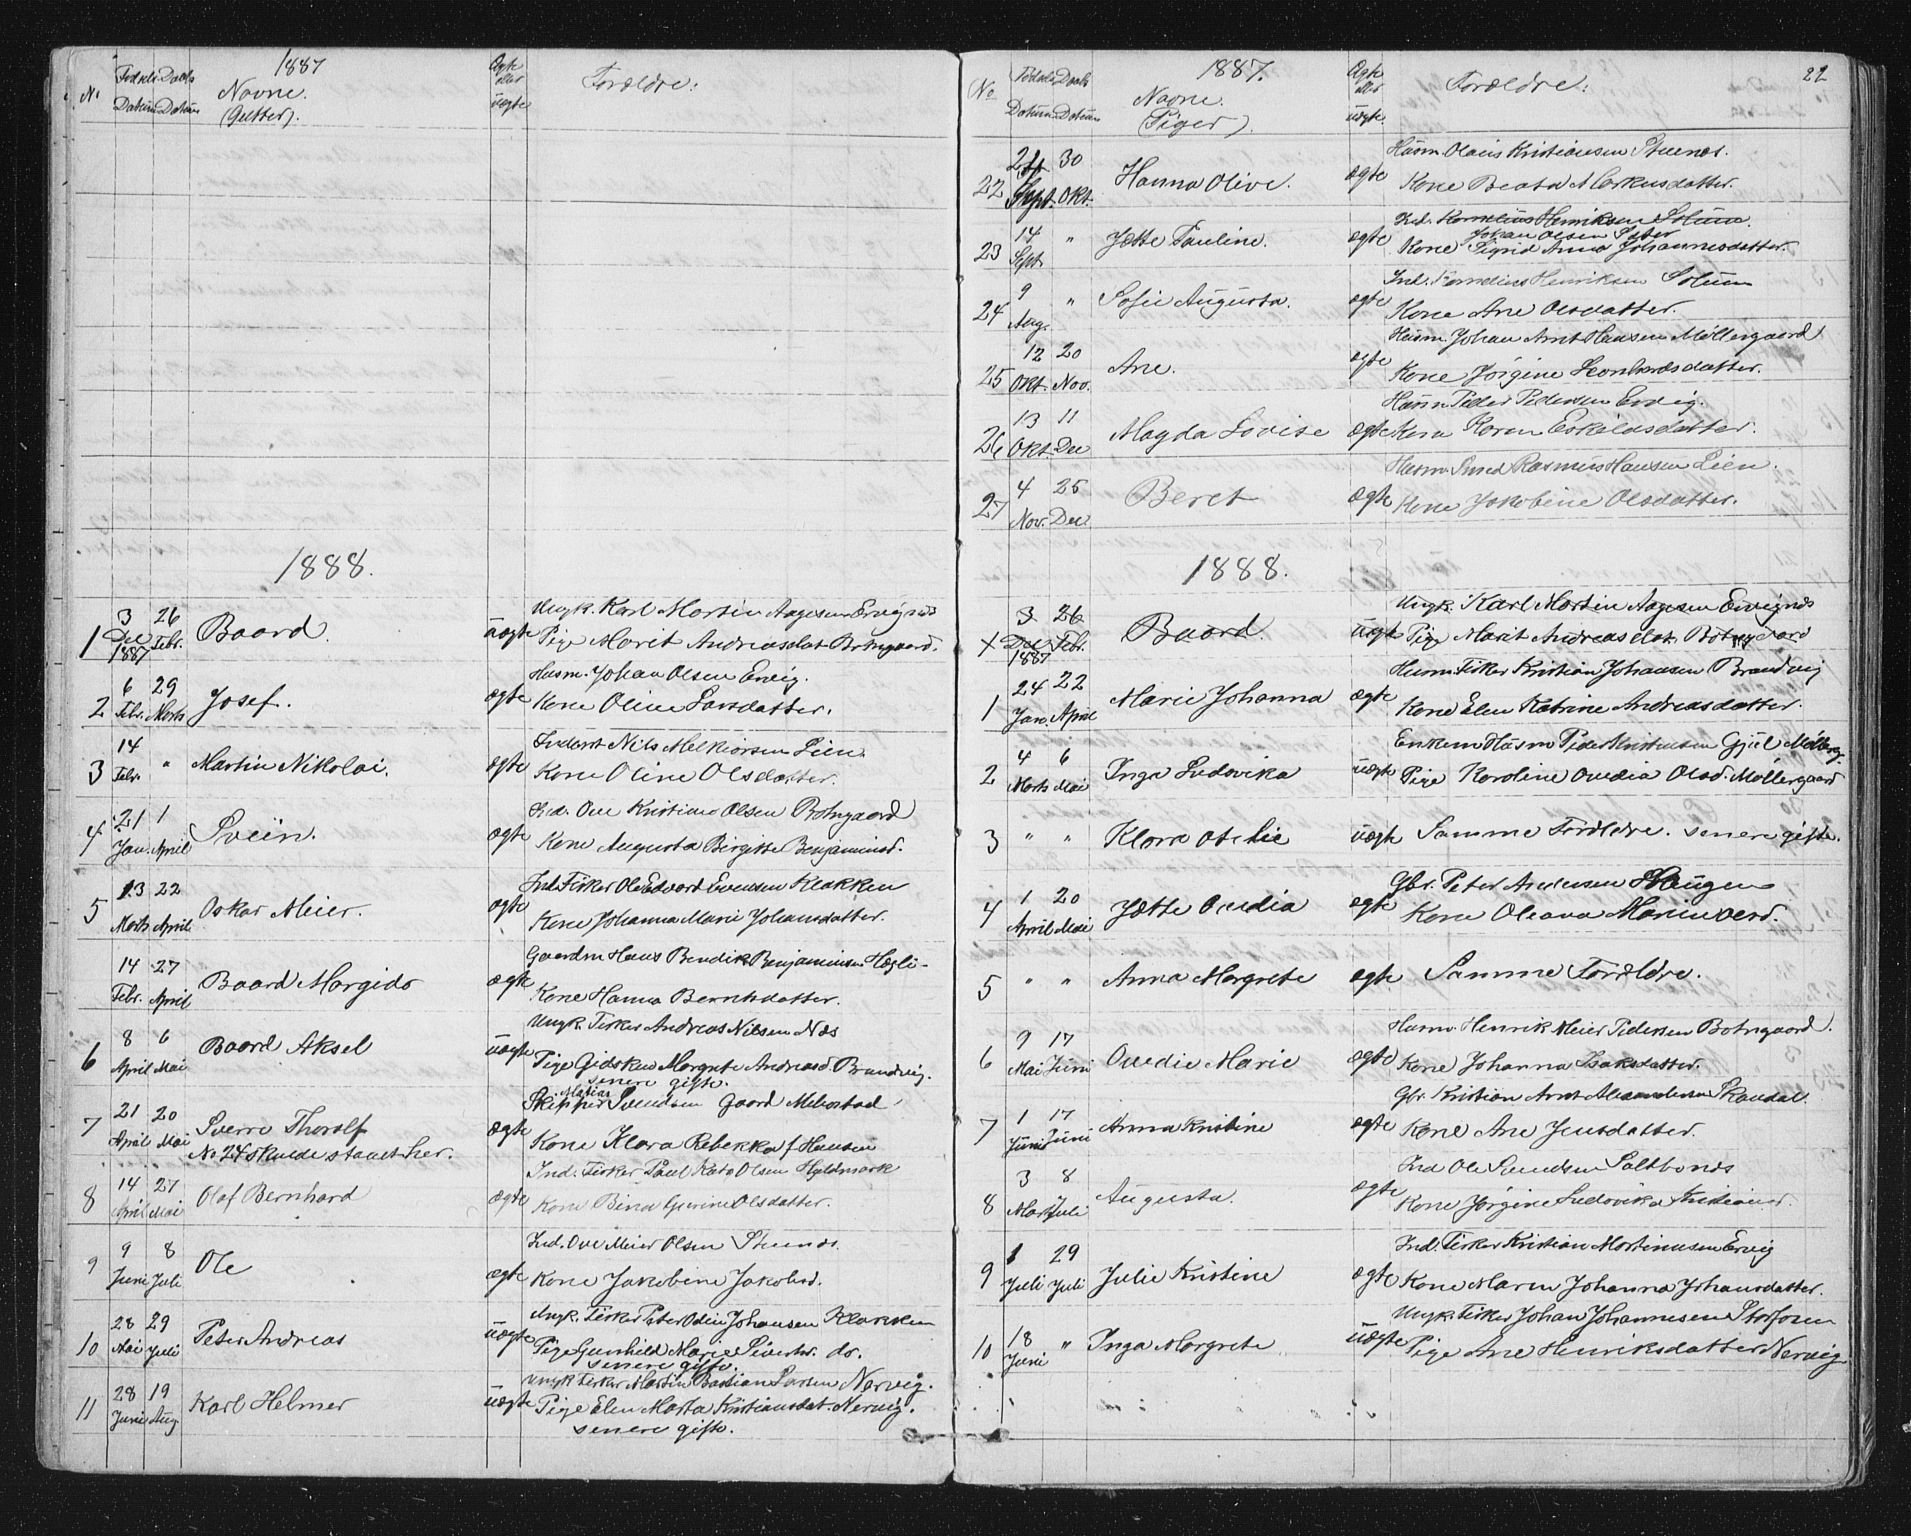 1887
N. Fødsels Daabs Navne. Ægte Forældre:
Datum Datum (Gutter). eller uægte
1888.
1 3 Dec 1887 26 Febr. Baard. uægte Ungk. Karl Martin Aagesen Ervignæs
Pige Marit Andreasdat Botngaard.
2 6 Febr. 29 Marts Josef. ægte Husm. Johan Olsen Ervig.
Kone Oline Larsdatter.
3 14 Febr. " Martin Nikolai. ægte Inderst Nils Melkiorsen Lien
Kone Oline Olsdatter.
4 21 Jan. 1 April Svein. ægte Ind. Ove Kristian Olsen Botngaard
Kone Augusta Birgitte Benjaminsd.
5 13 Marts 22 April Oskar Meier. ægte Ind. Fisker Ole Edvard Evensen Klakken
Kone Johanna Marie Johansdatter.
14 Febr. 27 April Baard Margido ægte Gaardm Hans Bendik Benjaminsen Høgli
Kone Hanna Berntsdatter.
6 8 April 6 Mai Baard Aksel uægte Ungk. Fisker Andreas Nilsen Næs
Pige Gidsken Margrete Andreasd. Brandvig.
senere gifte.
7 21 April 20 Mai Sverre Thorolf ægte Skipper Matias Svendsen Gaard Melvostad
No 24 skulde staaet her. Kone Klara Rebekka f Hansen
8 14 April 27 Mai Olaf Bernhard ægte Ind. Fisker Paul Kato Olsen Hyldmark
Kone Bina Gurine Olsdatter.
9 9 Juni 8 Juli Ole ægte Ind. Ove Meier Olsen Stuenæs.
Kone Jakobine Jakobsd.
10 28 Mai 29 Juli Peter Andreas uægte Ungk. Fisker Peter Odin Johansen Klakken
Pige Gunhild Marie Sivertsd. do.
senere gifte.
11 28 Juni 19 Aug. Karl Helmer uægte Ungk Fisker Martin Bastian Larsen Nervig.
Pige Elen Marta Kristiansdat. Nervig.
senere gifte.
1887. 22
No Fødsels Daabs Navne. Ægte Forældre:
Datum Datum (Piger). eller uægte.
22 24 Sept. 30 Okt. Hanna Olive. ægte Husm. Olaus Kristiansen Stuenæs.
Kone Beata Markusdatter.
23 14 Sept. " Jette Pauline. ægte Ind. Kornelius Henriksen Solum
Johan Olsen Sæter
Kone Sigrid Anna Johannesdatter.
24 9 Aug. " Sofie Augusta. ægte Ind. Kornelius Henriksen Solum
Kone Ane Olsdatter.
25 12 Okt. 20 Nov. Ane. ægte Husm. Johan Arnt Hansen Møllergaard
Kone Jørgine Leonhardsdatter.
26 13 Okt. 11 Dec Magda Lovise ægte Husm Peder Pedersen Ervig.
Kone Karen Eskildsdatter.
27 4 Nov. 25 Dec Beret ægte Husm. Smed Rasmus Hansen Lien.
Kone Jakobine Olsdatter.
1888.
3 Dec 1887 26 Febr. Baard. uægte Ungk. Karl Martin Aagesen Ervignæs
Pige Marit Andreasdat. Botngaard
1 24 Jan. 22 April Marie Johanna ægte Husm. Fisker Kristian Johansen Brandvig
Kone Elen Katrine Andreasdatter.
2 4 Marts 6 Mai Inga Ludovika uægte Enkem Husm Peder Kristensen Gjul Mølberg
Pige Karoline Ovedia Olsd. Møllergaard
3 " " Klara Otelie uægte Samme Forældre. senere gifte.
4 1 April 20 Mai Jette Ovedia ægte Gbr. Peter Andersen Haugen
Kone Oleana Marius verd.
5 " " Anna Margrete ægte Samme Forældre.
6 9 Mai 17 Juni Ovedie Marie ægte Husm. Henrik Meier Pedersen Botngaard.
Kone Johanna Isaksdatter.
7 1 Juni 17 Juni Anna Kristine ægte Gbr. Kristian Arnt Alexandersen Skavdal.
Kone Ane Jensdatter.
8 3 Marts 8 Juli Augusta. ægte Ind Ole Svendsen Saltbonæs
Kone Jørgine Ludovika Kristiansd.
9 1 Juli 29 Juli Julie Kristine ægte Ind. Fisker Kristian Martinusen Ervig
Kone Maren Johanna Johansdatter.
10 18 Juni " Inga Margrete uægte Ungk. Fisker Johan Johannesen Storfosen
Pige Ane Henriksdatter Nervig